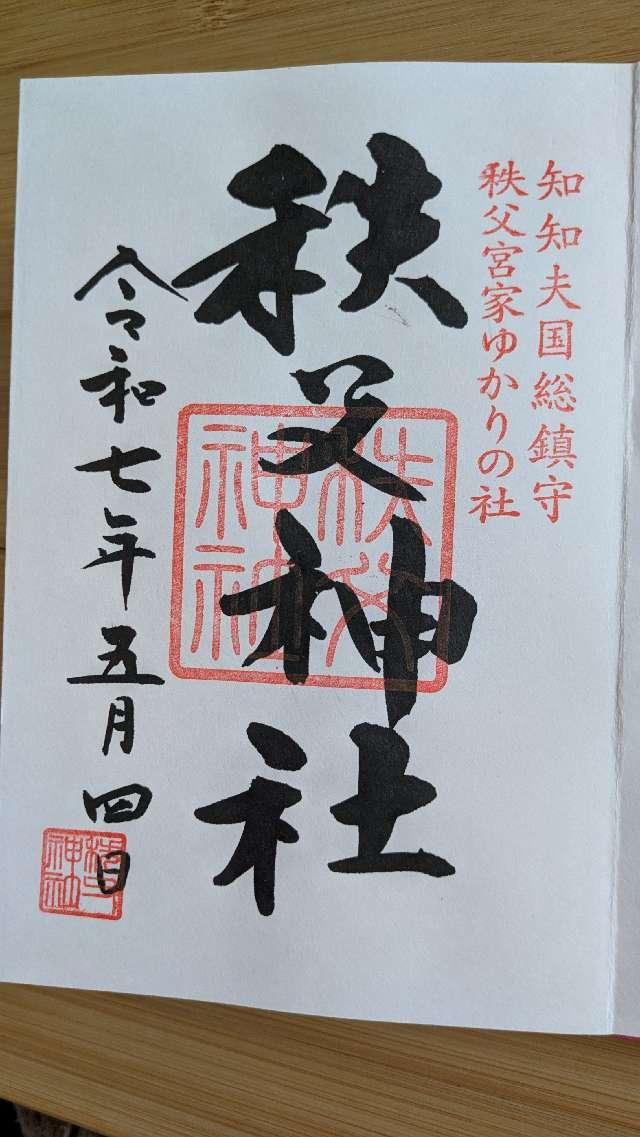 知知夫国総鎮守
秩父宮家ゆかりの社
秩父神社
秩父神社
令和七年五月四日
神社